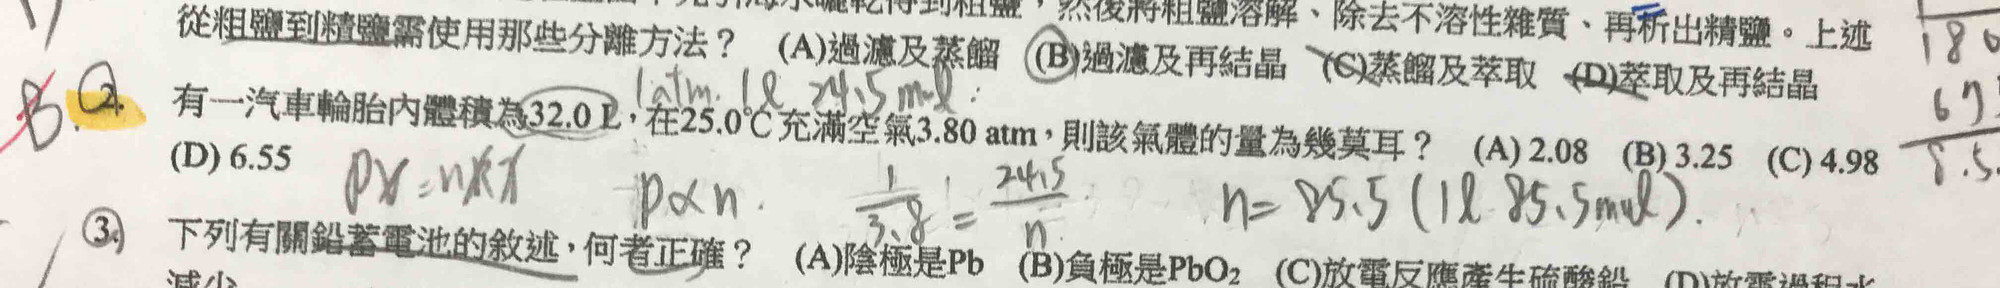 然後將粗鹽溶解、除去不溶性雜質、再析出精鹽。上述
從粗鹽到精鹽需使用那些分離方法? (A)過濾及蒸餾 (B)過濾及再結晶 (C)蒸餾及萃取 (D)萃取及再結晶
180
1atm. 1l 24.5 mol.
B. 2. 有一汽車輪胎內體積為32.0 L,在25.0℃充滿空氣3.80 atm,則該氣體的量為幾莫耳? (A) 2.08 (B) 3.25 (C) 4.98
(D) 6.55
PV=nRT P∝n. 1/3.8 = 24.5/n n= 85.5 (1l 85.5mol).
3. 下列有關鉛蓄電池的敘述,何者正確? (A)陰極是Pb (B)負極是PbO₂ (C)放電反應產生硫酸鉛 (D)放電過程水
減少